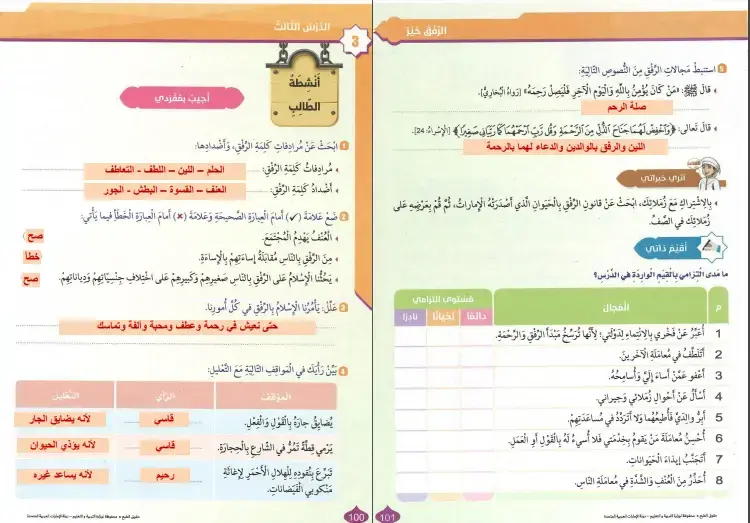 الدَّرْسُ الثَّالِثُ
3
أَنْشِطَةُ
الطَّالِبِ
أُجيبُ بِمُفْرَدي
1 ابْحَثْ عَنْ مُرادِفاتِ كَلِمَةِ الرِّفْقِ، وَأَضْدادِها:
مُرادِفاتُ كَلِمَةِ الرِّفْقِ: الحلم – اللين – اللطف - التعاطف
أَضْدادُ كَلِمَةِ الرِّفْقِ: العنف – القسوة – البطش - الجور
2 ضَعْ عَلامَةَ (✓) أَمامَ الْعِبارَةِ الصَّحيحَةِ وَعَلامَةَ (×) أَمامَ الْعِبارَةِ الْخَطَأِ فيما يَأْتي:
الْعُنْفُ يَهْدِمُ الْمُجْتَمَعَ. صح
مِنَ الرِّفْقِ بِالنّاسِ مُقابَلَةُ إِساءَتِهِمْ بِالْإِساءَةِ. خطا
يَحُثُّنا الْإِسْلامُ عَلى الرِّفْقِ بِالنّاسِ صَغيرِهِمْ وَكَبيرِهِمْ عَلى اخْتِلافِ جِنْسِيّاتِهِمْ وَدِياناتِهِمْ. صح
3 عَلِّلْ: يَأْمُرُنا الْإِسْلامُ بِالرِّفْقِ في كُلِّ أُمورِنا.
حتى نعيش في رحمة وعطف ومحبة والفة وتماسك
4 بَيِّنْ رَأْيَكَ في الْمَواقِفِ التّالِيَةِ مَعَ التَّعْليلِ:
الْمَوْقِفُ الرَّأْيُ التَّعْليلُ
يُضايِقُ جارَهُ بِالْقَوْلِ وَالْفِعْلِ. قاسي لأنه يضايق الجار
يَرْمي قِطَّةً تَمُرُّ في الشّارِعِ بِالْحِجارَةِ. قاسي لأنه يؤذي الحيوان
تَبَرَّعَ بِنُقودِهِ لِلْهِلالِ الْأَحْمَرِ لِإِغاثَةِ
مَنْكوبي الْفَيَضاناتِ. رحيم لأنه يساعد غيره
100
الرِّفْقُ خَيْرٌ
5 اسْتَنْبِطْ مَجالاتِ الرِّفْقِ مِنَ النُّصوصِ التّالِيَةِ:
قالَ ﷺ: «مَنْ كانَ يُؤْمِنُ بِاللَّهِ وَالْيَوْمِ الْآخِرِ فَلْيَصِلْ رَحِمَهُ» [رَواهُ الْبُخارِيُّ].
صلة الرحم
قالَ تَعالى: ﴿وَاخْفِضْ لَهُمَا جَنَاحَ الذُّلِّ مِنَ الرَّحْمَةِ وَقُل رَّبِّ ارْحَمْهُمَا كَمَا رَبَّيَانِي صَغِيرًا﴾ [الْإِسْراءُ: 24].
اللين والرفق بالوالدين والدعاء لهما بالرحمة
أُثْري خِبْراتي
بِالِاشْتِراكِ مَعَ زُمَلائِكَ، ابْحَثْ عَنْ قانونِ الرِّفْقِ بِالْحَيَوانِ الَّذي أَصْدَرَتْهُ الْإِماراتُ، ثُمَّ قُمْ بِعَرْضِهِ عَلى
زُمَلائِكَ في الصَّفِّ.
أُقَيِّمُ ذاتي
ما مَدى الْتِزامي بِالْقِيَمِ الْوارِدَةِ في الدَّرْسِ؟
م الْمَجالُ مُسْتَوى الْتِزامي
دائمًا أَحْيانًا نادِرًا
1 أُعَبِّرُ عَنْ فَخْري بِالِانْتِماءِ لِدَوْلَتي؛ لِأَنَّها تُرَسِّخُ مَبْدَأَ الرِّفْقِ وَالرَّحْمَةِ.
2 أَتَلَطَّفُ في مُعامَلَةِ الْآخَرينَ.
3 أَعْفو عَمَّنْ أَساءَ إِلَيَّ وَأُسامِحُهُ.
4 أَسْأَلُ عَنْ أَحْوالِ زُمَلائي وَجيراني.
5 أَبَرُّ والِدَيَّ فَأُطيعُهُما وَلا أَتَرَدَّدُ في مُساعَدَتِهِمْ.
6 أُحْسِنُ مُعامَلَةَ مَنْ يَقومُ بِخِدْمَتي فَلا أُسيءُ لَهُ بِالْقَوْلِ أَوِ الْعَمَلِ.
7 أَتَجَنَّبُ إيذاءَ الْحَيَواناتِ.
8 أُحَذِّرُ مِنَ الْعُنْفِ وَالشِّدَّةِ في مُعامَلَةِ النّاسِ.
101